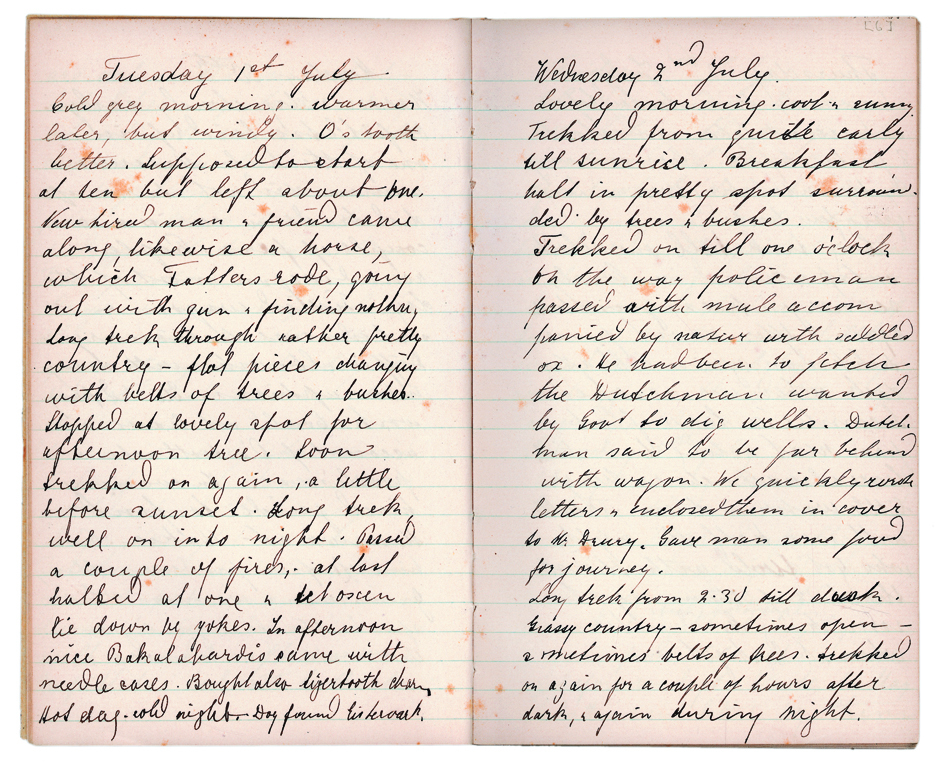 Tuesday 1st July
Cold grey morning. warmer
later, but windy. O's tooth
better. Supposed to start
at ten but left about one.
New hired man & friend came
along, likewise a horse,
which Fatters rode, going
out with gun & finding nothg,
Long trek through rather pretty
country – flat pieces changing
with belts of trees & bushes.
Stopped at lovely spot for
afternoon tree. Soon
trekked on again, a little
before sunset. Long trek
well on into night. Passed
a couple of fires, at last
halted at one & let oxen
lie down by yokes. In afternoon
nice Bakalahardis came with
needle cases. Bought also tigertooth charm,
Hot day - cold night - Dog found
[6]
Wednesday 2nd July.
Lovely morning. cool & sunny
Trekked from quite early
till sunrise. Breakfast
halt in pretty spot surroun-
ded by trees & bushes.
Trekked on till one o'clock
On the way policeman
passed with mule accom
panied by natur with saddled
ox. He had been to fetch
the Dutchman wanted
by Govt to dig wells. Dutch-
man said to be far behind
with wagon. We quickly wrote
letters & enclosed them in cover
to Mr. Drury. Gave man some food
for journey.
Long trek from 2.30 till dusk.
Grassy country – sometimes open –
sometimes belts of trees. trekked
on again for a couple of hours after
dark, & again during night.